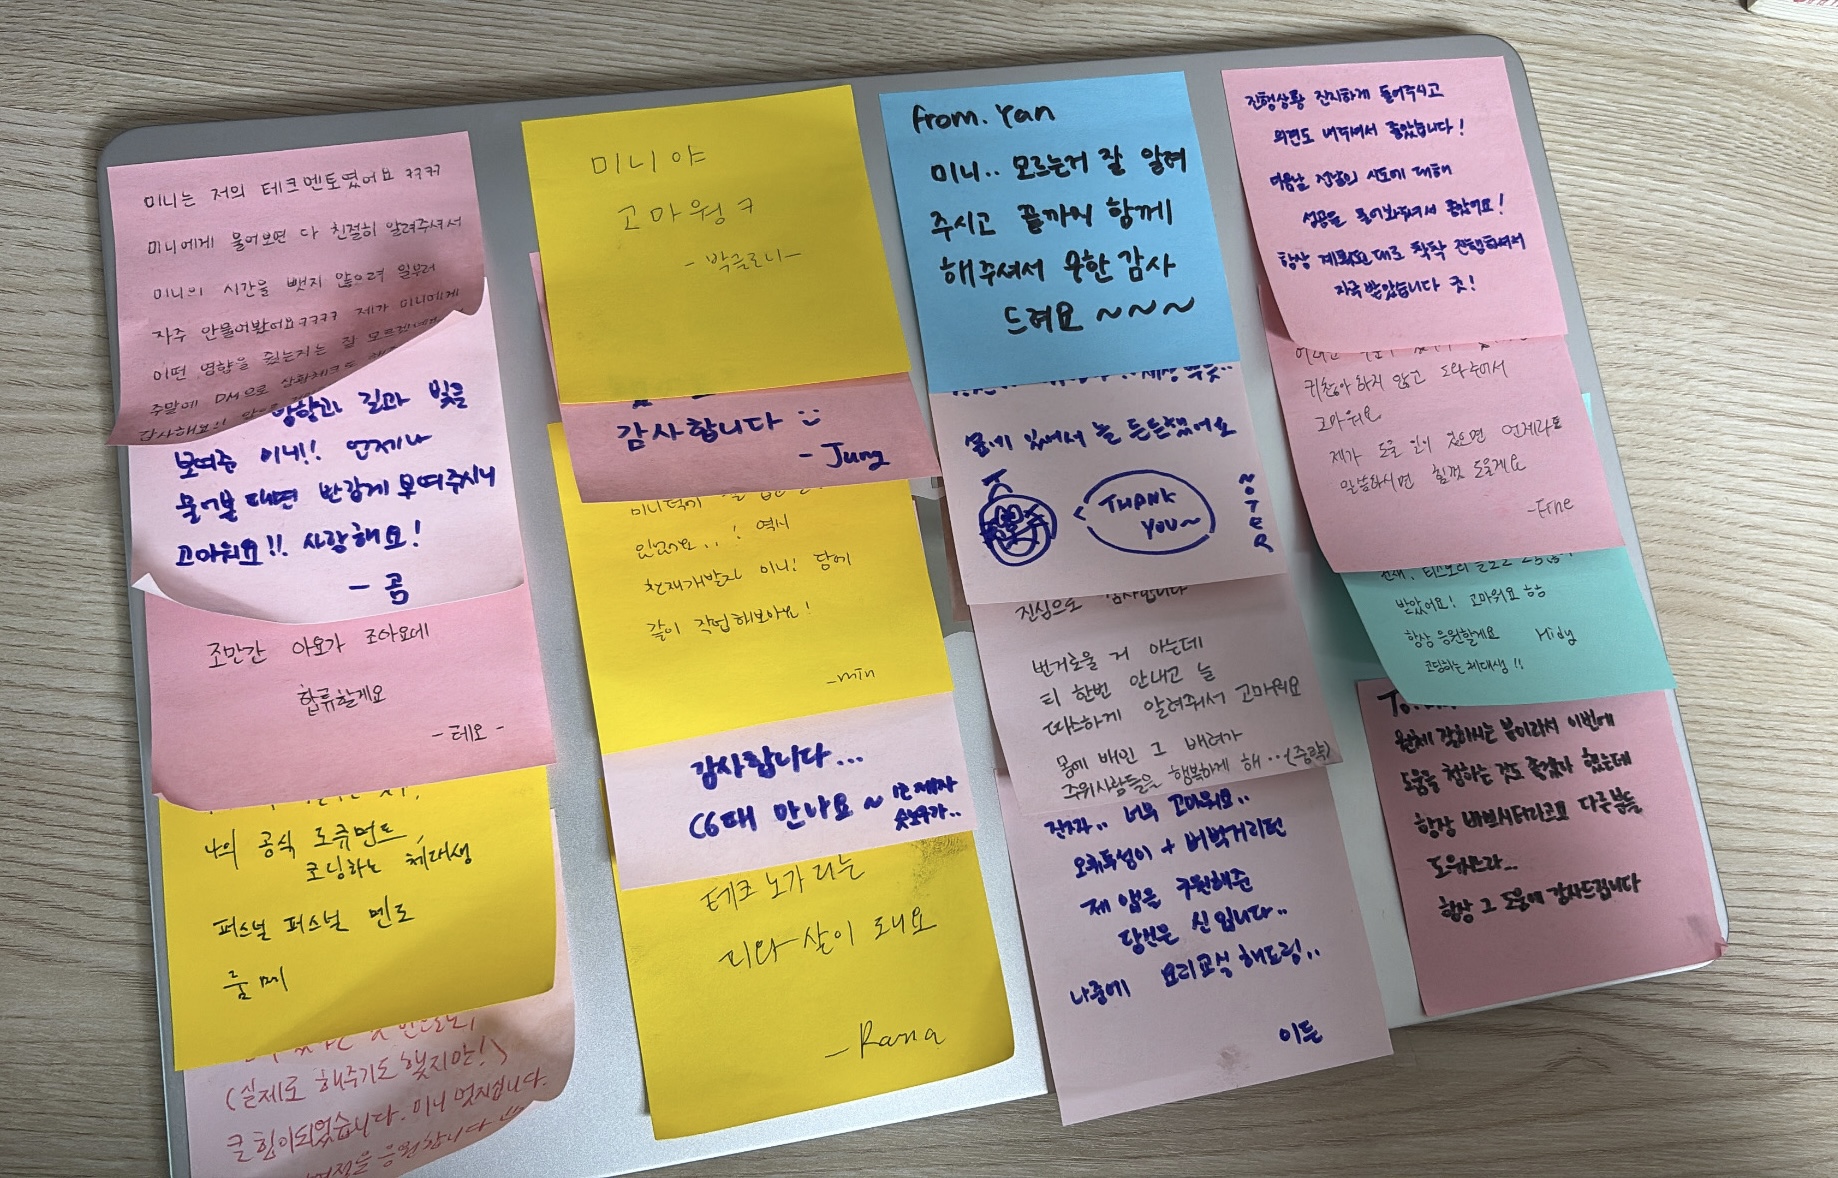 미니는 저의 테크멘토였어요 ㅋㅋㅋㅋ
미니에게 물어보면 다 친절히 알려주셔서
미니의 시간을 뺏지 않으려 일부러
자주 안물어봤어요ㅋㅋㅋㅋ 제가 미니에게
어떤 영향을 줬는지는 잘 모르겠네요
주말에 DM으로 상황체크도
감사해요!!
방향과 길과 빛을
보여준 미니!! 언제나
물어볼 때면 반갑게 맞여주시니
고마워요!! 사랑해요!
- 곰
조만간 아요가 조아요데
합류할게요
- 테오 -
나의 공식 도큐먼트
코딩하는 체대생
퍼스널 퍼스널 멘토
룸메
(실제로 해주기도 했지만!)
큰 힘이되었습니다. 미니 멋지십니다.
응원합니다
미니야
고마웡 ㅋ
- 박글로니 -
감사합니다
- Jung
있었어요..! 역시
천재개발자 미니! 담에
같이 작업해보아요!
- min
감사합니다...
C6때 만나요~
테크 노가리는
피다 살이 되니요
- Rana
from. Yan
미니.. 모르는거 잘 알려
주시고 끝까지 함께
해주셔서 무한 감사
드려요 ~~~
옆에 있어서 늘 든든했어요
THANK
YOU~
진심으로 감사합니다
번거로울 거 아는데
티 한번 안내고 늘
따스하게 알려줘서 고마워요
몸에 배인 그 배려가
주위사람들을 행복하게 해...(중략)
진짜.. 너무 고마워요..
오류투성이 + 버벅거리던
제 앱을 구원해준
당신은 신입니다..
나중에 요리교실 해도링..
이든
진행상황 진지하게 들어주시고
의견도 내주셔서 좋았습니다!
다음날 전날의 시도에 대해
성공을 물어봐주셔서 좋았어요!
항상 계획한대로 착착 진행하셔서
자극 받았습니다 굿!
귀찮아 하지 않고 도와주어서
고마워요
제가 도울 일이 있으면 언제라도
말씀하시면 힘껏 도울게요
- Erne
받았어요! 고마워요 항
항상 응원할게요 Hidy
코딩하는 체대생!!
원체 잘하시는 분이라서 이번에
도움을 청하는 것도 좋겠다 했는데
항상 바쁘시더라고요 다른분들
도와주느라...
항상 그 도움에 감사드립니다